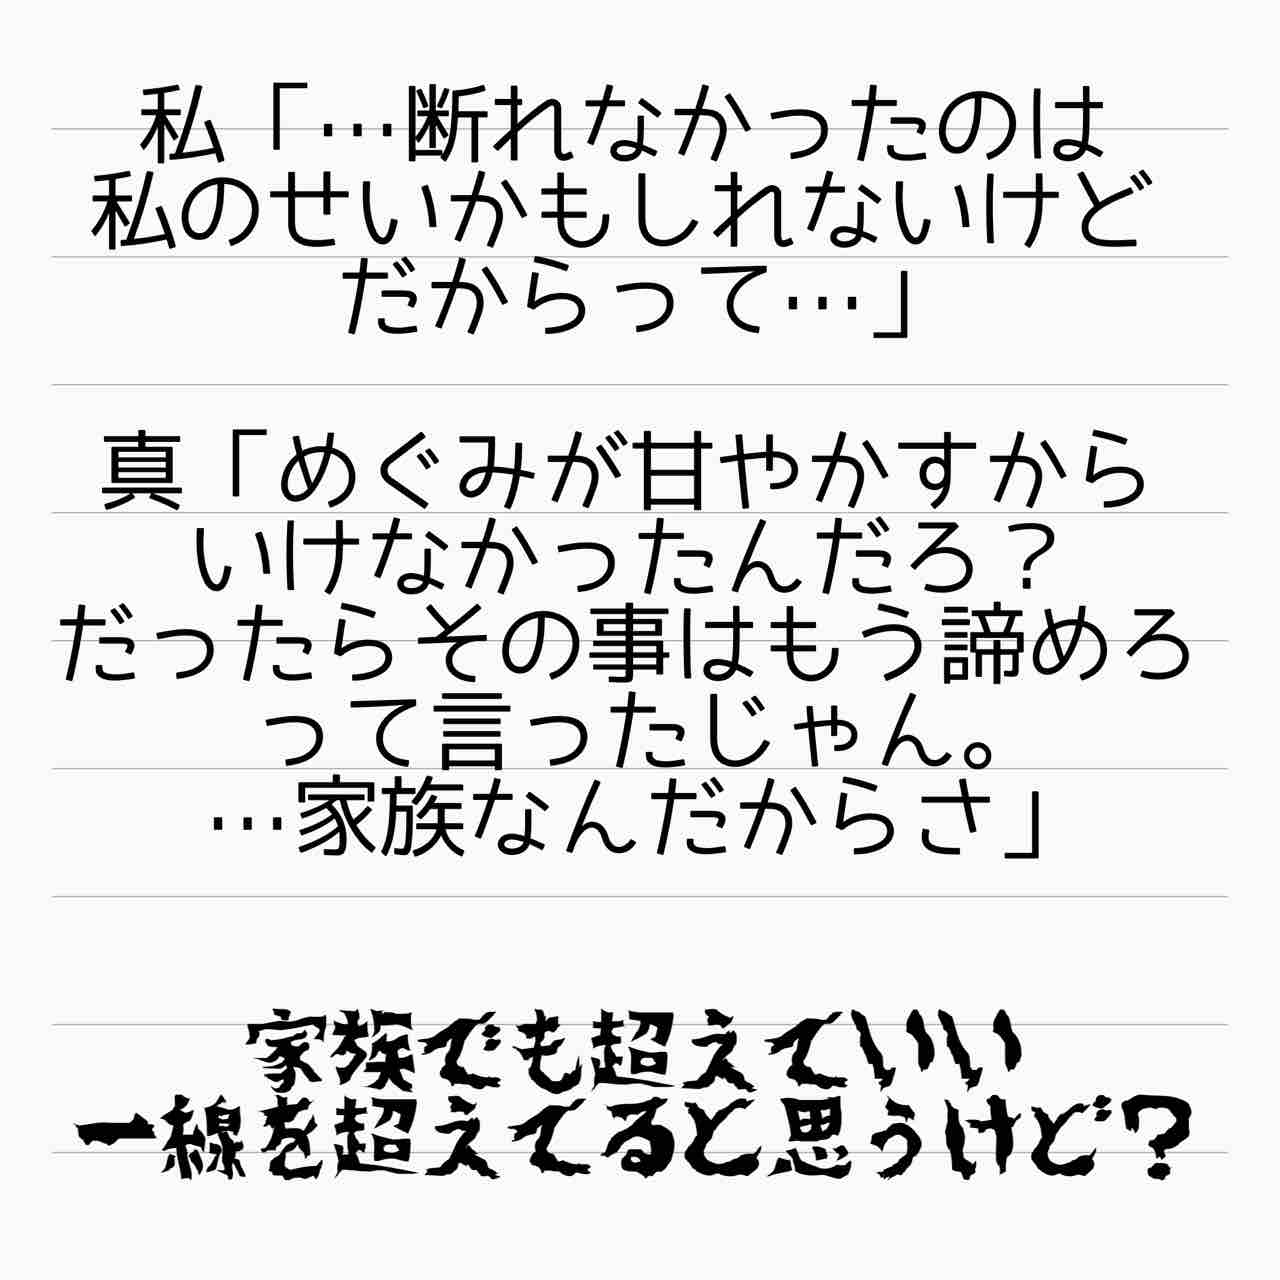 私「…断れなかったのは
私のせいかもしれないけど
だからって…」
真「めぐみが甘やかすから
いけなかったんだろ？
だったらその事はもう諦めろ
って言ったじゃん。
…家族なんだからさ」
家族でも超えていい
一線を超えてると思うけど？